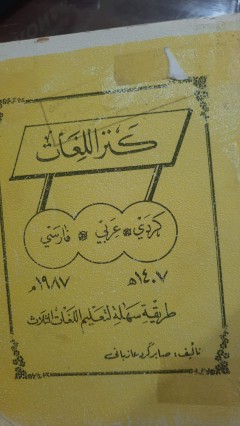 كنز اللغات
كردي * عربي * فارسي
١٤٠٧ هـ ١٩٨٧ م
طريقة سهلة لتعليم اللغات الثلاث
تأليف: صابر كرد عازباني